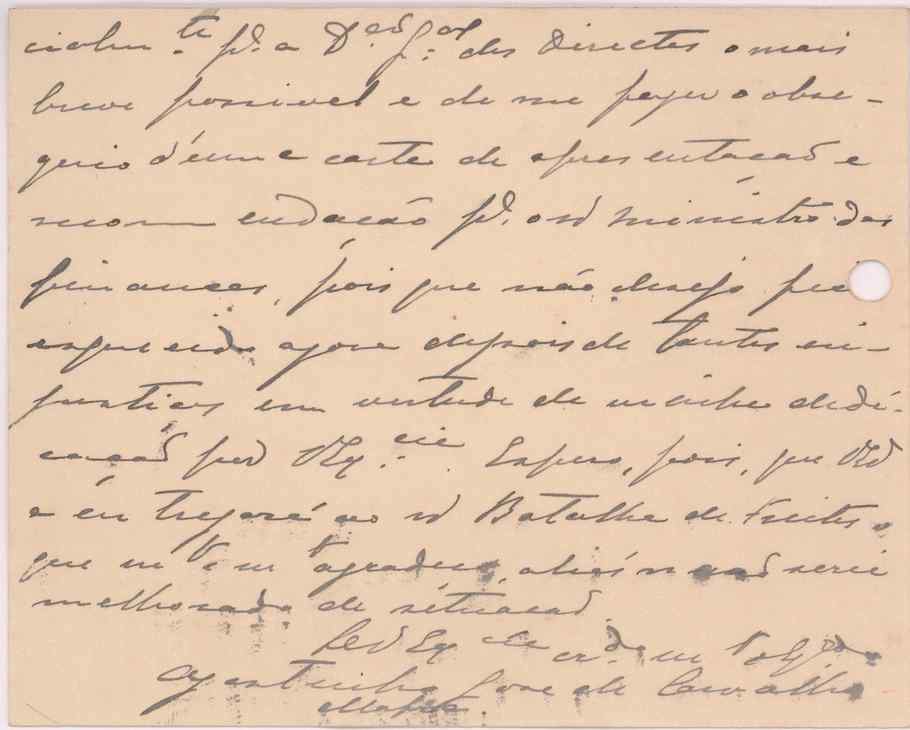 cialm.te p.a a D.cção G.al dos Directos o mais
breve possivel e de me fazer o obse-
quio d'uma carta de apresentação e
recommendação p.a o sr Ministro das
finanças, pois que não desejo ficar
esquecido agora depois de tantas in-
justiças em virtude de minha dedi-
cação por V Ex.cia. Espero, pois, que
a entregará ao sr Batalha de Freitas o
que m.to e m.to agradeço, aliás não serei
melhorado de situação
De V Ex.cia cr.do m.to obg.do
Agostinho Jose de Carvalho